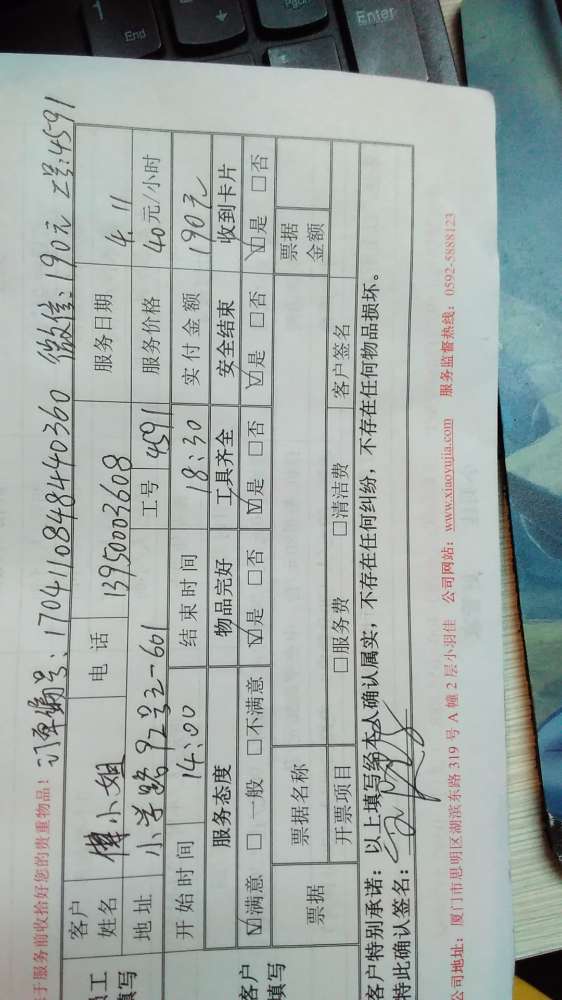 于服务前收拾好您的贵重物品! 订单编号:17041108484440360 微信:190元 工号:4591
员工填写 客户姓名 傅小姐 电话 13950003608 服务日期 4.11
地址 小学路92号之一601 工号 4591 服务价格 40元/小时
开始时间 14:00 结束时间 18:30 实付金额 190元
客户填写 服务态度 物品完好 工具齐全 安全结束 收到卡片
☑满意 □一般 □不满意 ☑是 □否 ☑是 □否 ☑是 □否 ☑是 □否
票据 票据名称 票据金额
开票项目 □服务费 □清洁费 客户签名
客户特别承诺:以上填写经本人确认属实,不存在任何纠纷,不存在任何物品损坏。
特此确认签名:
公司地址:厦门市思明区湖滨东路 319 号 A 幢 2 层小羽佳 公司网站:www.xiaoyujia.com 服务监督热线:0592-5888123
End
PgDn
Enter